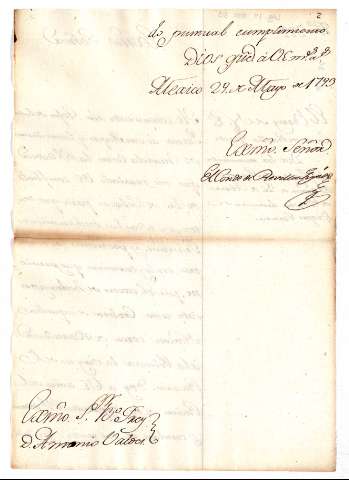 2
do puntual cumplimiento.
Dios gũe à V.E. m.s a.s
Mexico 29. de Mayo de 1793
Excmõ. Señor
El Conde de Revilla Gigedo
Excmõ. S.r B.o Frey
D. Antonio Valdes.